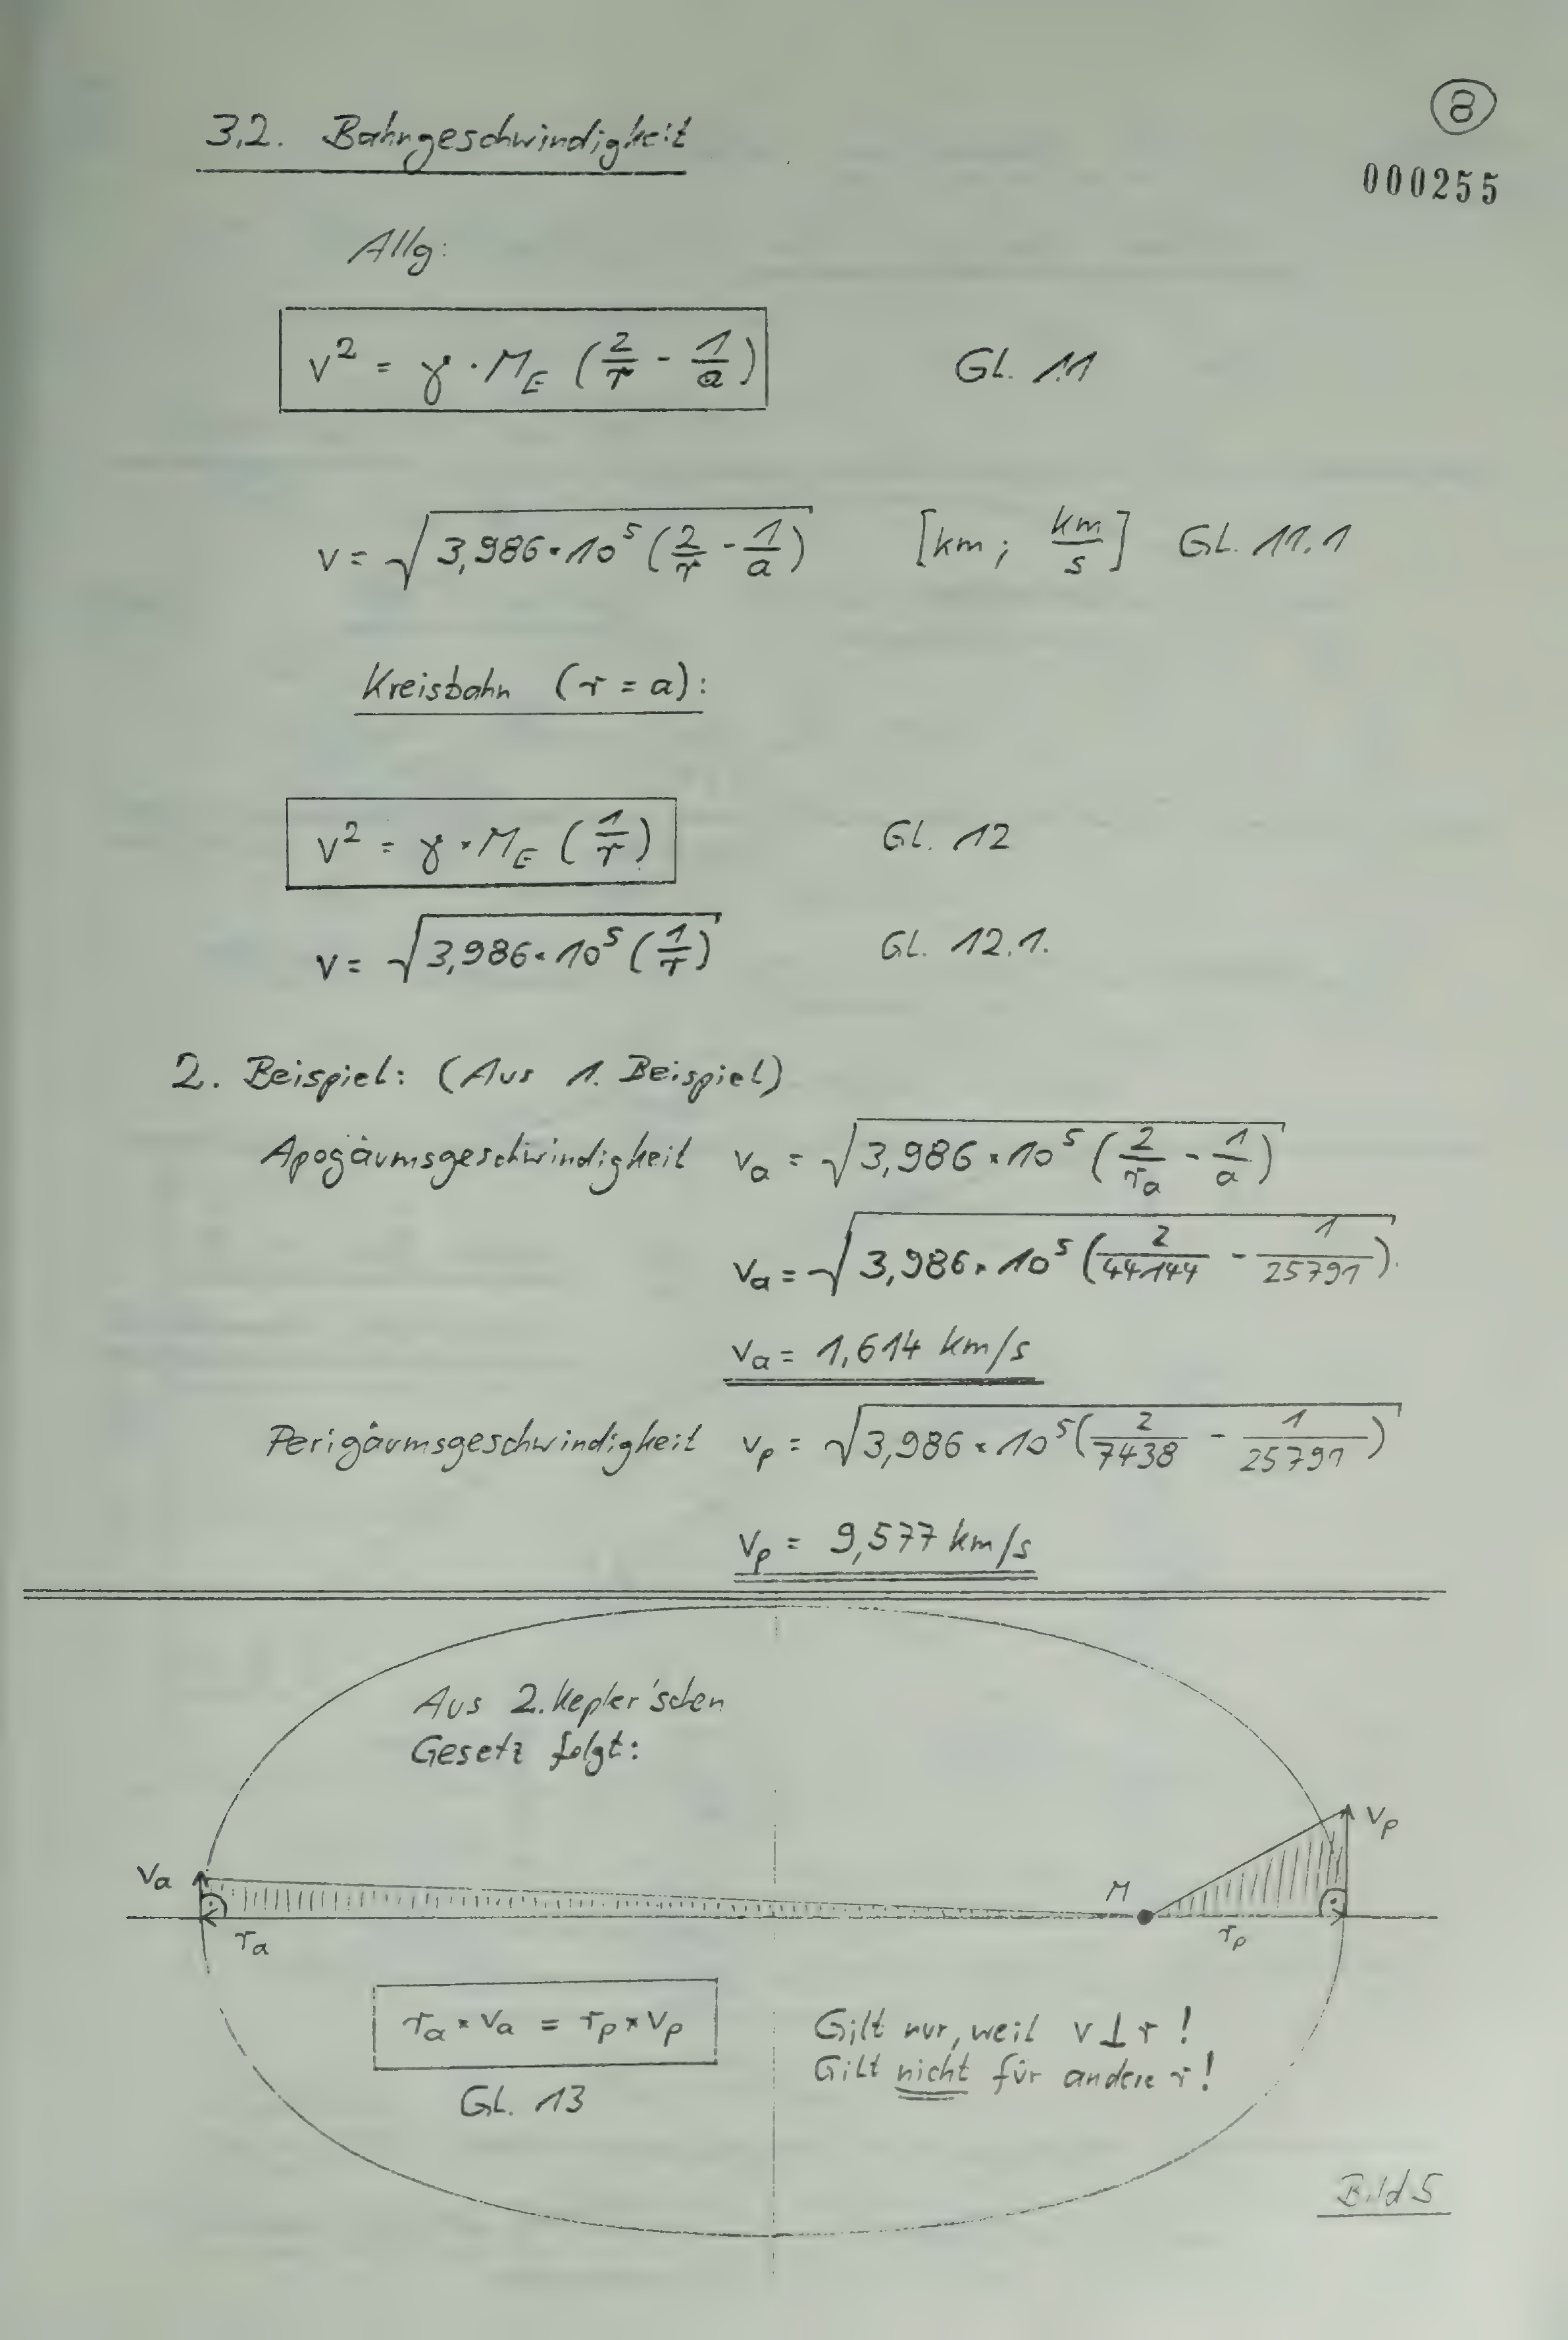 8
3.2. Bahngeschwindigkeit
000255
Allg:
v² = γ · M_E (2/r - 1/a) GL. 11
v = √(3,986 · 10⁵ (2/r - 1/a)) [km ; km/s] GL. 11.1
Kreisbahn (r = a):
v² = γ · M_E (1/r) GL. 12
v = √(3,986 · 10⁵ (1/r)) GL. 12.1.
2. Beispiel: (Aus 1. Beispiel)
Apogäumsgeschwindigkeit v_a = √(3,986 · 10⁵ (2/r_a - 1/a))
v_a = √(3,986 · 10⁵ (2/44144 - 1/25791))
v_a = 1,614 km/s
Perigäumsgeschwindigkeit v_p = √(3,986 · 10⁵ (2/7438 - 1/25791))
v_p = 9,577 km/s
Aus 2. Kepler'schen
Gesetz folgt:
v_p
v_a
M
r_a
r_p
r_a · v_a = r_p · v_p
GL. 13
Gilt nur, weil v ⊥ r !
Gilt nicht für andere r !
Bild 5